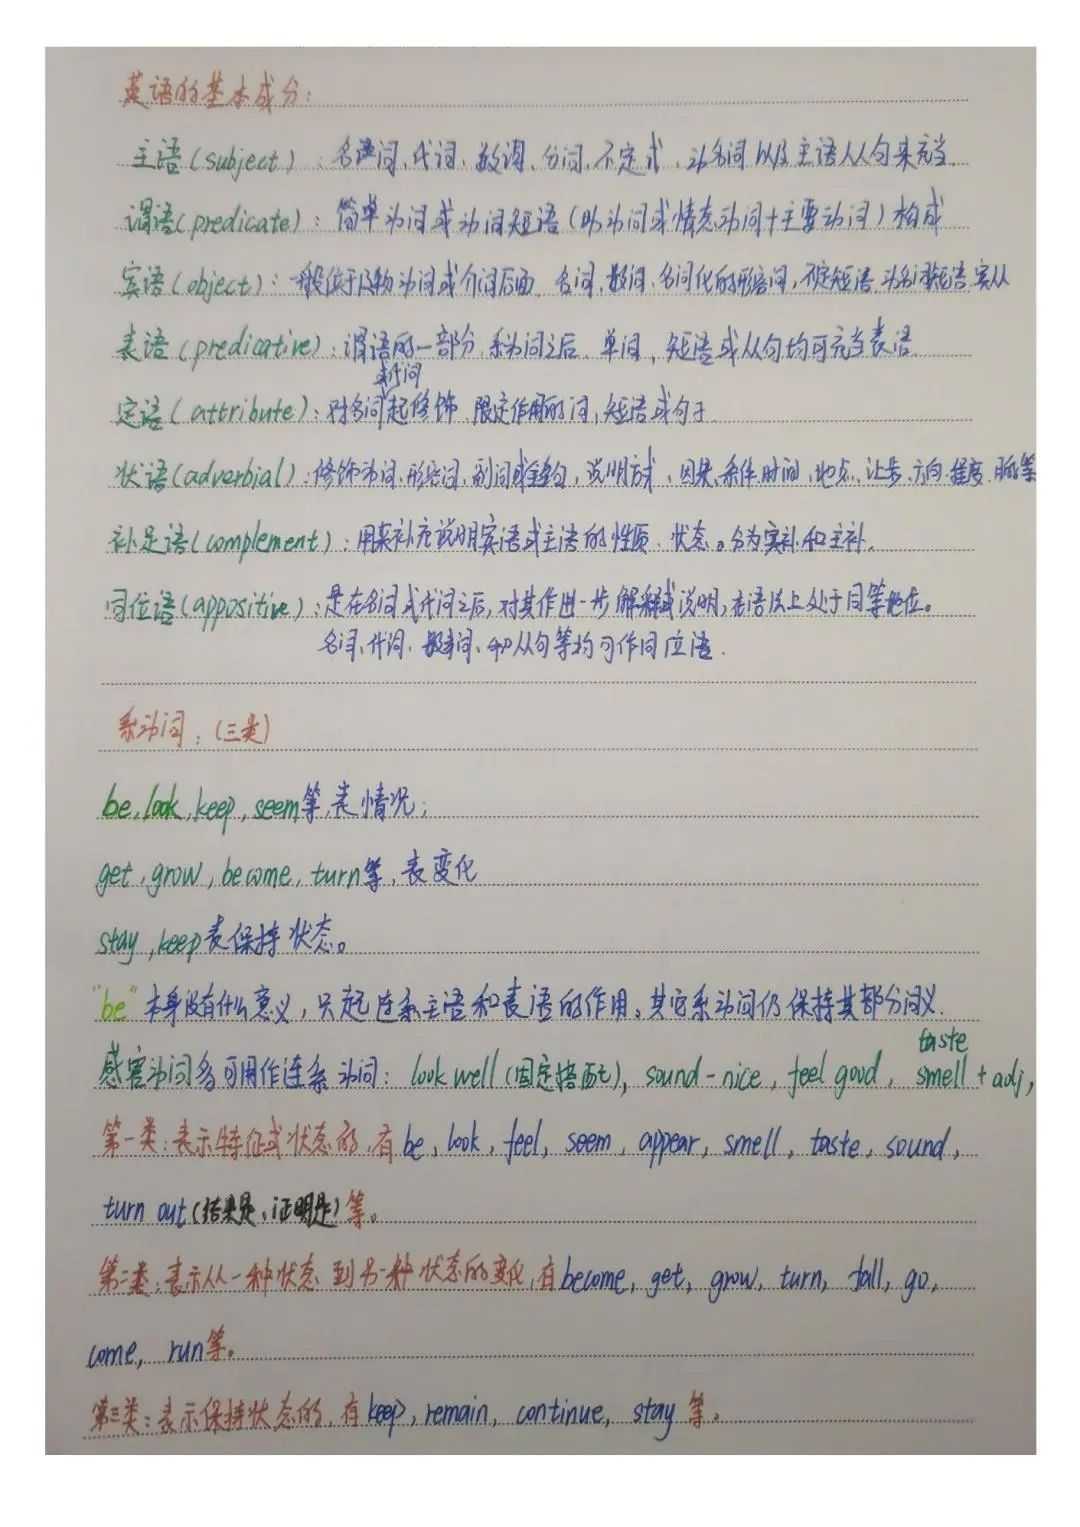 英语的基本成分：
主语（subject）：名词、代词、数词、分词、不定式、动名词以及主语从句来充当.
谓语（predicate）：简单动词或动词短语（助动词或情态动词+主要动词）构成
宾语（object）：一般位于及物动词或介词后面 名词，数词，名词化的形容词，不定短语 动名词短语 宾从
表语（predicative）：谓语的一部分，系动词之后 单词，短语或从句均可充当表语.
新词
定语（attribute）：对名词起修饰 限定作用的词，短语或句子
状语（adverbial）：修饰动词，形容词，副词或整句，说明方式，因果，条件，时间，地点，让步，方向，程度，等
补足语（complement）：用来补充说明宾语或主语的性质、状态。分为宾补和主补.
同位语（appositive）：是在名词或代词之后，对其作进一步解释或说明，在语法上处于同等地位。
名词、代词、数词、和从句等均可作同位语.
系动词：（三类）
be, look, keep, seem等，表情况；
get, grow, become, turn等，表变化
stay, keep表保持状态。
“be”本身没有什么意义，只起连系主语和表语的作用。其它系动词仍保持其部分词义.
taste
感官动词多可用作连系动词：look well（固定搭配），sound-nice, feel good, smell + adj,
第一类：表示特征或状态的，有be, look, feel, seem, appear, smell, taste, sound,
turn out（结果是、证明是）等。
第二类：表示从一种状态到另一种状态的变化，有become, get, grow, turn, fall, go,
come, run等。
第三类：表示保持状态的，有keep, remain, continue, stay等。